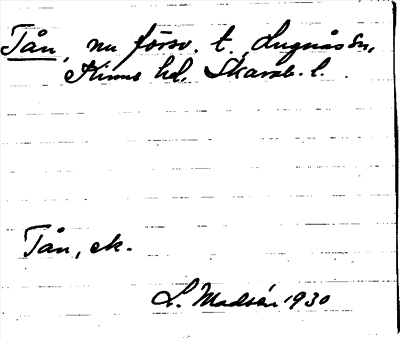 Tån, nu försv. t. Lugnås sn,
Kinne hd, Skarab. l.
Tån, ek.
L. Madsén 1930